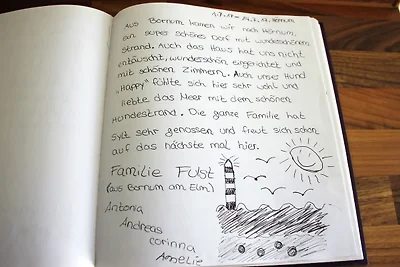 Aus Bornum kamen wir nach Hörnum,
ein super schönes Dorf mit wunderschönem
Strand. Auch das Haus hat uns nicht
enttäuscht, wunderschön eingerichtet und
mit schönen Zimmern. Auch unser Hund
„Happy" fühlte sich hier sehr wohl und
liebte das Meer mit dem schönen
Hundestrand. Die ganze Familie hat
Sylt sehr genossen und freut sich schon
auf das nächste mal hier.
Familie Fulst
(aus Bornum am Elm)
Antonia
Andreas
Corinna
Amelie